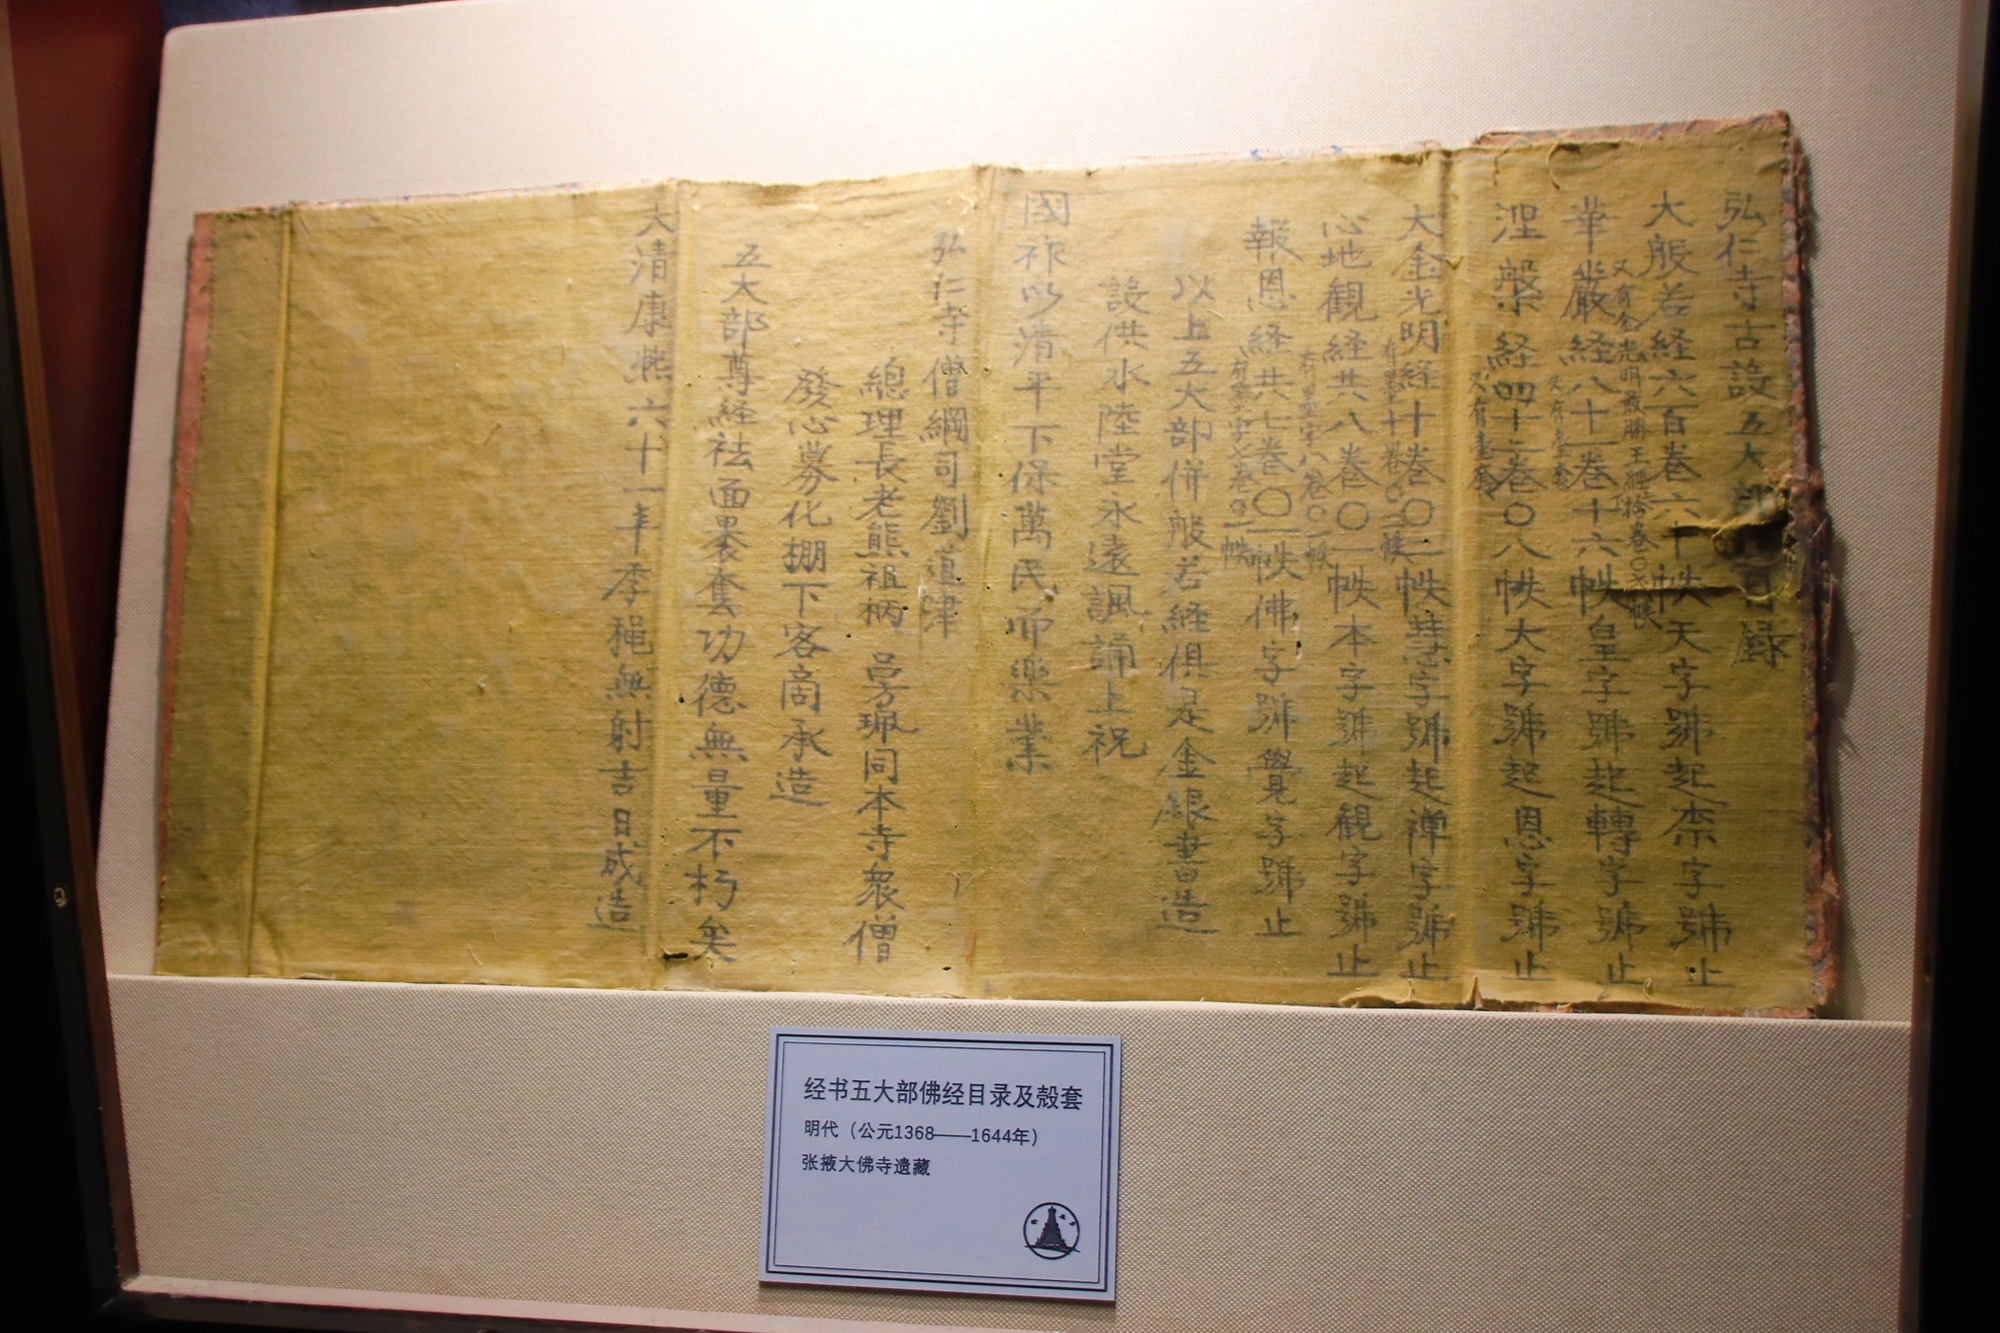 弘仁寺古設五大部目録
大般若経六百巻六十帙天字號起柰字號止
又有金光明最勝王經拾卷〇弍帙
華嚴経八十一巻十六帙皇字號起轉字號止
又有壹套
涅槃経四十二巻〇八帙大字號起恩字號止
又有壹套
大金光明経十巻〇二帙慧字號起禅字號止
有墨字十卷〇二帙
心地観経共八巻〇一帙本字號起観字號止
有墨字八卷〇一帙
報恩経共七巻〇一帙佛字號覺字號止
有墨字七卷〇一帙
以上五大部併般若経俱是金銀書造
設供水陸堂永遠諷誦上祝
國祚以清平下保萬民而樂業
弘仁寺僧綱司劉道津
總理長老熊祖柄 同本寺衆僧
發心募化棚下客商承造
五大部尊経祛面裹套功德無量不朽矣
大清康熙六十一年季穐無射吉日成造
经书五大部佛经目录及殻套
明代（公元1368——1644年）
张掖大佛寺遗藏